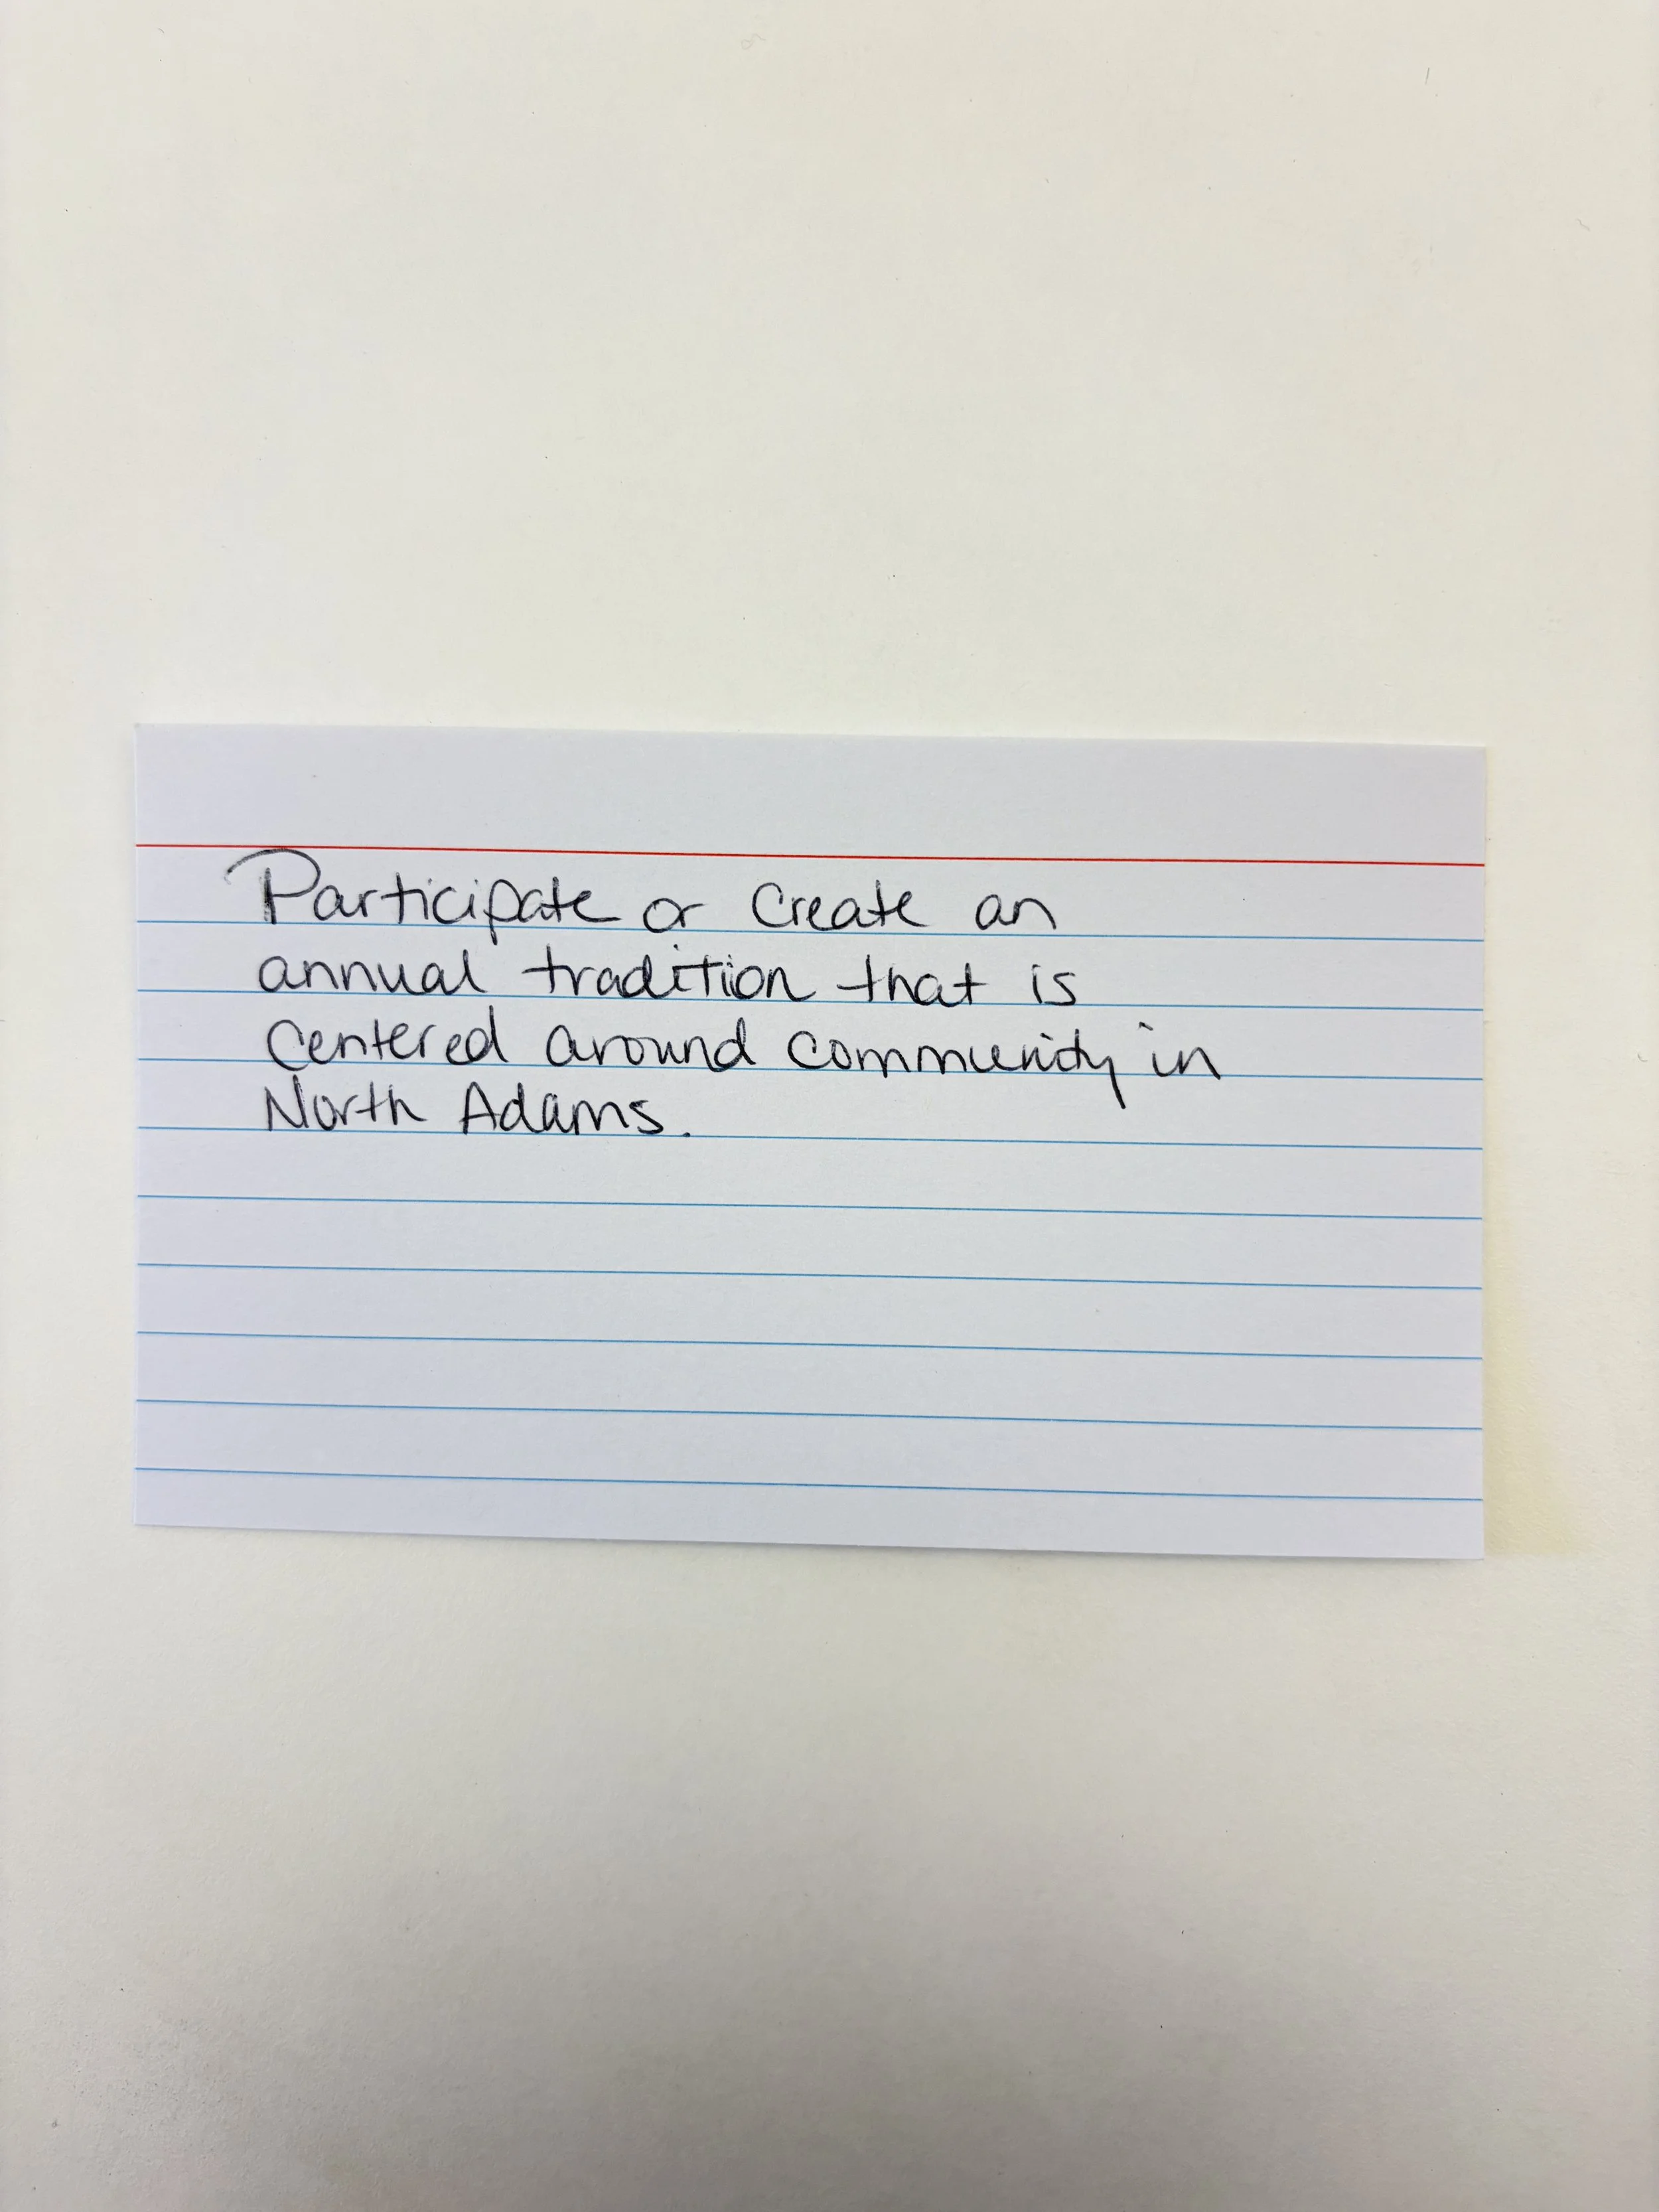 Participate or create an
annual tradition that is
centered around community in
North Adams.